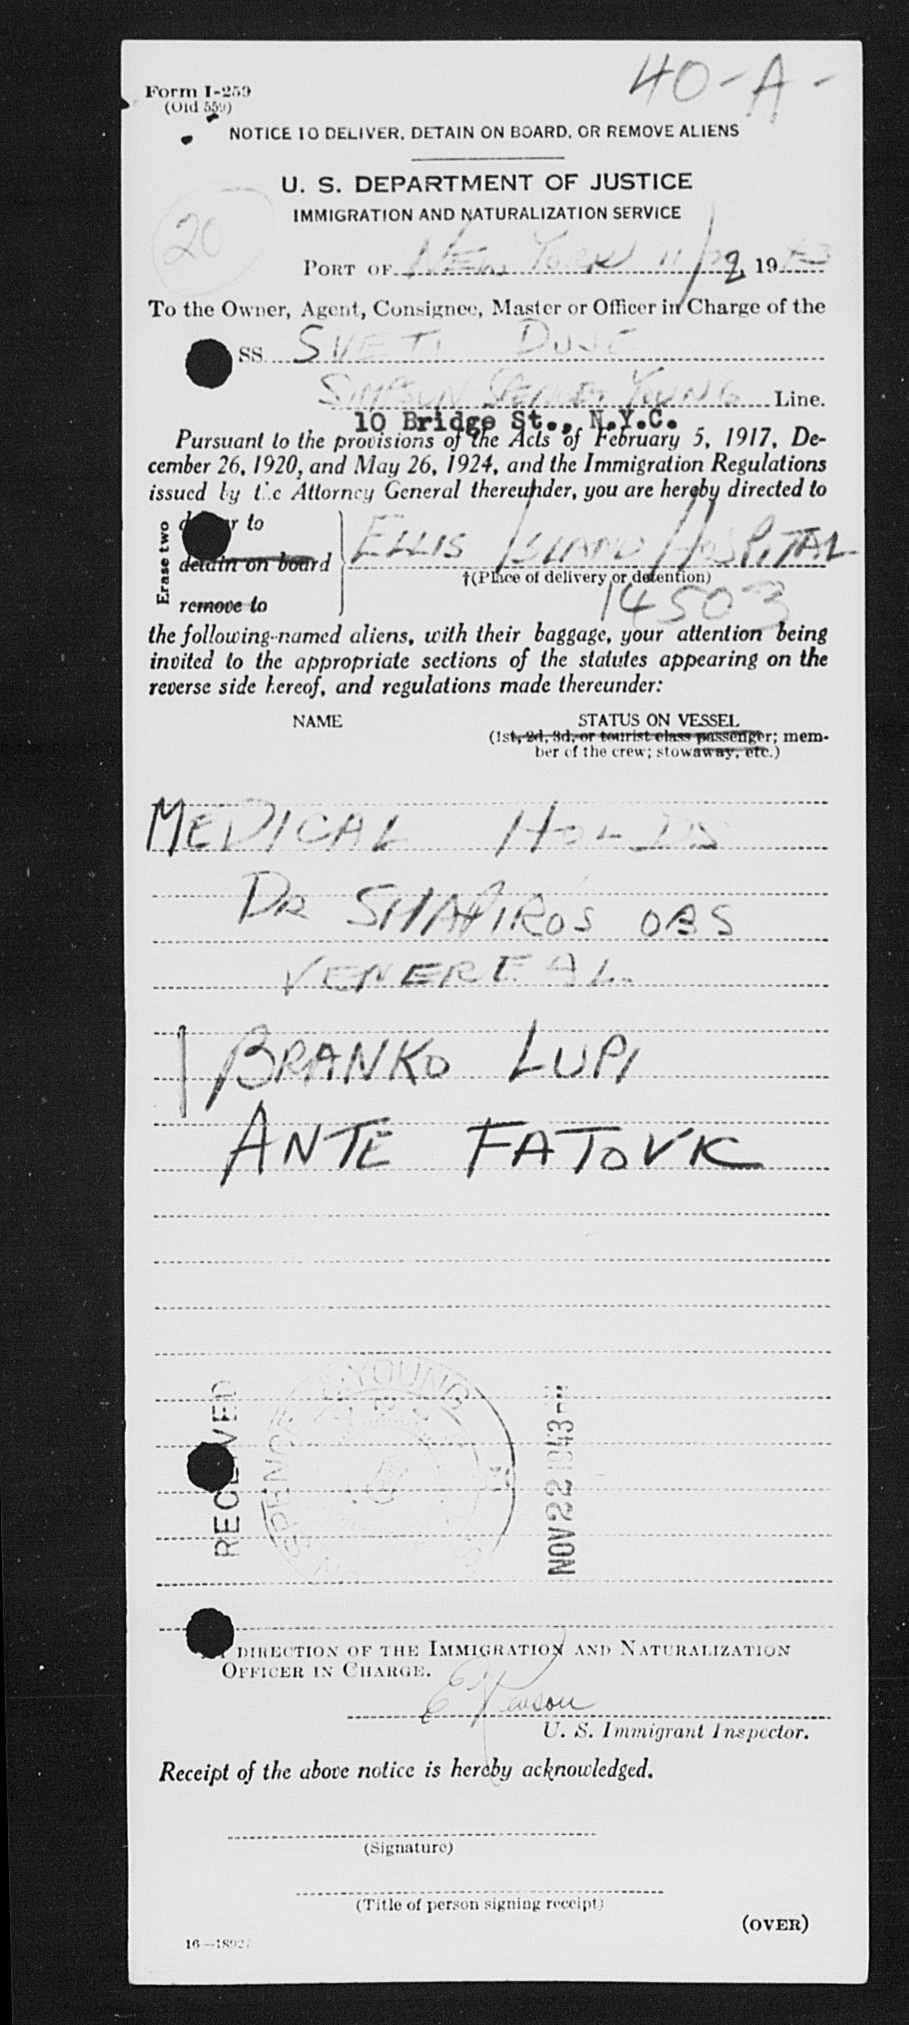 Form I-259
(Old 559)
40-A-
NOTICE TO DELIVER, DETAIN ON BOARD, OR REMOVE ALIENS
U. S. DEPARTMENT OF JUSTICE
IMMIGRATION AND NATURALIZATION SERVICE
20
PORT OF NEW YORK 11/22, 1943
To the Owner, Agent, Consignee, Master or Officer in Charge of the
SS. SVETI DUJE
SIMPSON SPENCE YOUNG Line.
10 Bridge St., N.Y.C.
Pursuant to the provisions of the Acts of February 5, 1917, De-
cember 26, 1920, and May 26, 1924, and the Immigration Regulations
issued by the Attorney General thereunder, you are hereby directed to
Erase two
to
detain on board
remove to
ELLIS ISLAND HOSPITAL
†(Place of delivery or detention)
14503
the following-named aliens, with their baggage, your attention being
invited to the appropriate sections of the statutes appearing on the
reverse side hereof, and regulations made thereunder:
NAME
STATUS ON VESSEL
(1st, 2d, 3d, or tourist class passenger; mem-
ber of the crew; stowaway, etc.)
MEDICAL HOLDS
DR SHAPIRO'S OBS
VENEREAL
BRANKO LUPI
ANTE FATOVIC
RECEIVED
SPENCE & YOUNG
NOV 22 1943
DIRECTION OF THE IMMIGRATION AND NATURALIZATION
OFFICER IN CHARGE.
U. S. Immigrant Inspector.
Receipt of the above notice is hereby acknowledged.
(Signature)
(Title of person signing receipt)
(OVER)
16—18927